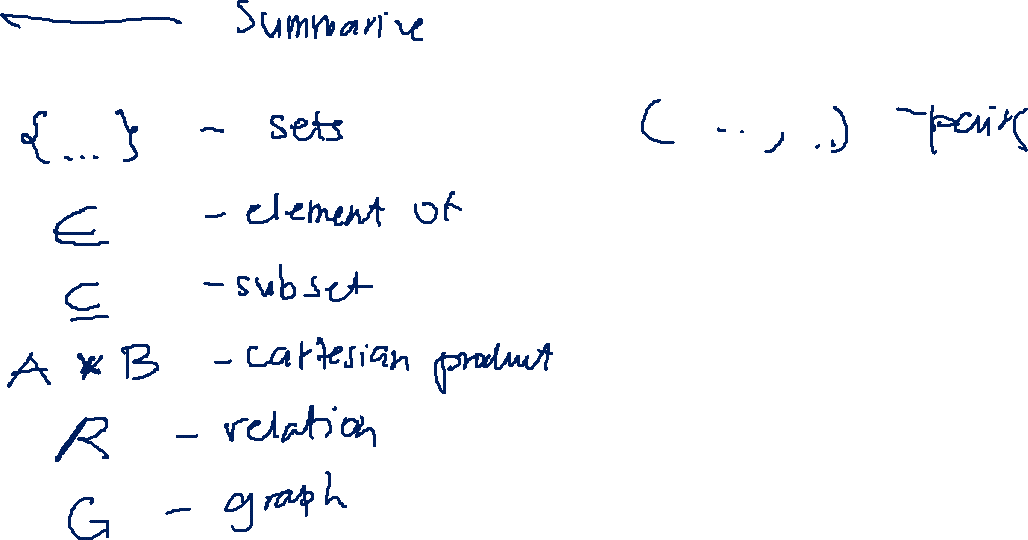 Summarive
{...} - sets (..,..) - pairs
∈ - element of
⊆ - subset
A × B - cartesian product
R - relation
G - graph